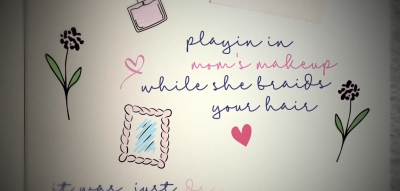 playin in
mom's makeup
while she braids
your hair
it was just